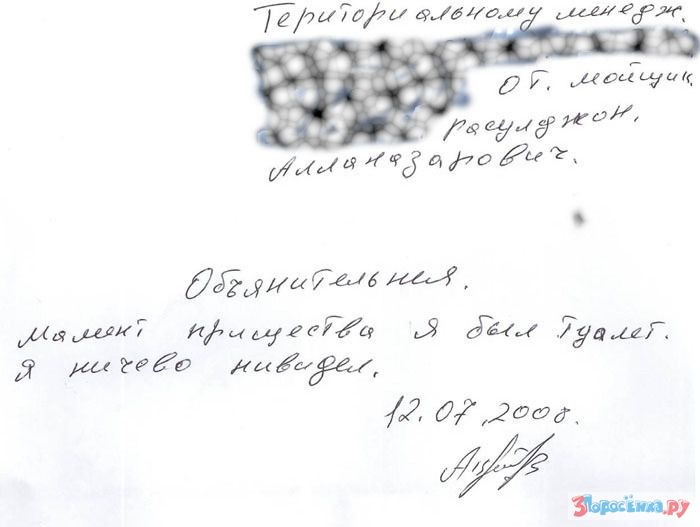 Териториальному менедж.
от. мойщик
расулджон.
Алланазарович.
Объянительния.
мамент прищества я был туалет.
я ничево нивидел.
12.07.2008.
3Поросёнка.ру